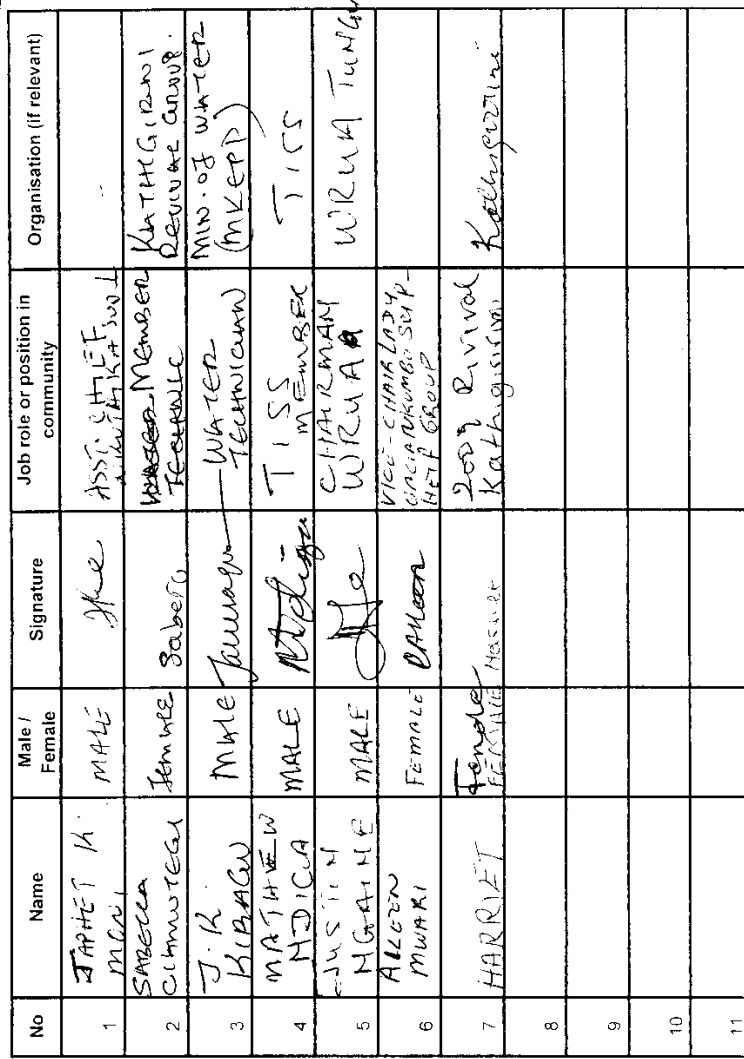 No
Name
Male /
Female
Signature
Job role or position in
community
Organisation (if relevant)
1
JAPHET K.
MALE
ASST. CHIEF
2
SABELLA
Female
Sabella
MEMBER
KATHIGIRINI
REVIVAL GROUP.
3
J. K.
KIRAGU
MALE
WATER
TECHNICIAN
MIN. OF WATER
(MKEPP)
4
MATHEW
NDIGA
MALE
TISS
MEMBER
TISS
5
JUSTIN
MALE
CHAIRMAN
WRUA
WRUA TUNGU
6
MWARI
FEMALE
VICE-CHAIRLADY
HELP GROUP
7
HARRIET
Female
FEMALE
2009 Rivival
Kathigirini
Kathigirini
8
9
10
11